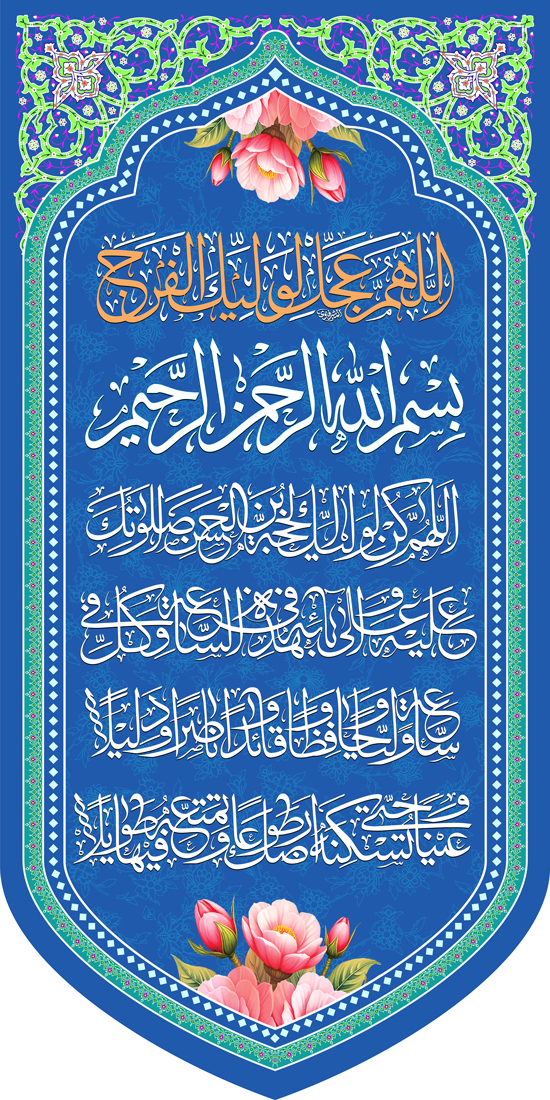 اللّهُمَّ عَجِّل لِوَلِيِّكَ الفَرَج
بِسْمِ اللهِ الرَّحْمنِ الرَّحيم
اَللّهُمَّ كُنْ لِوَلِيِّكَ الحُجَّةِ بْنِ الحَسَنِ صَلَواتُكَ
عَلَيهِ وَعَلى آبائِهِ في هذِهِ السّاعَةِ وَفي كُلِّ
ساعَةٍ وَلِيّاً وَحافِظاً وَقائِداً وَناصِراً وَدَليلاً
وَعَيناً حَتّى تُسْكِنَهُ أَرضَكَ طَوعاً وَتُمَتِّعَهُ فيها طَويلاً